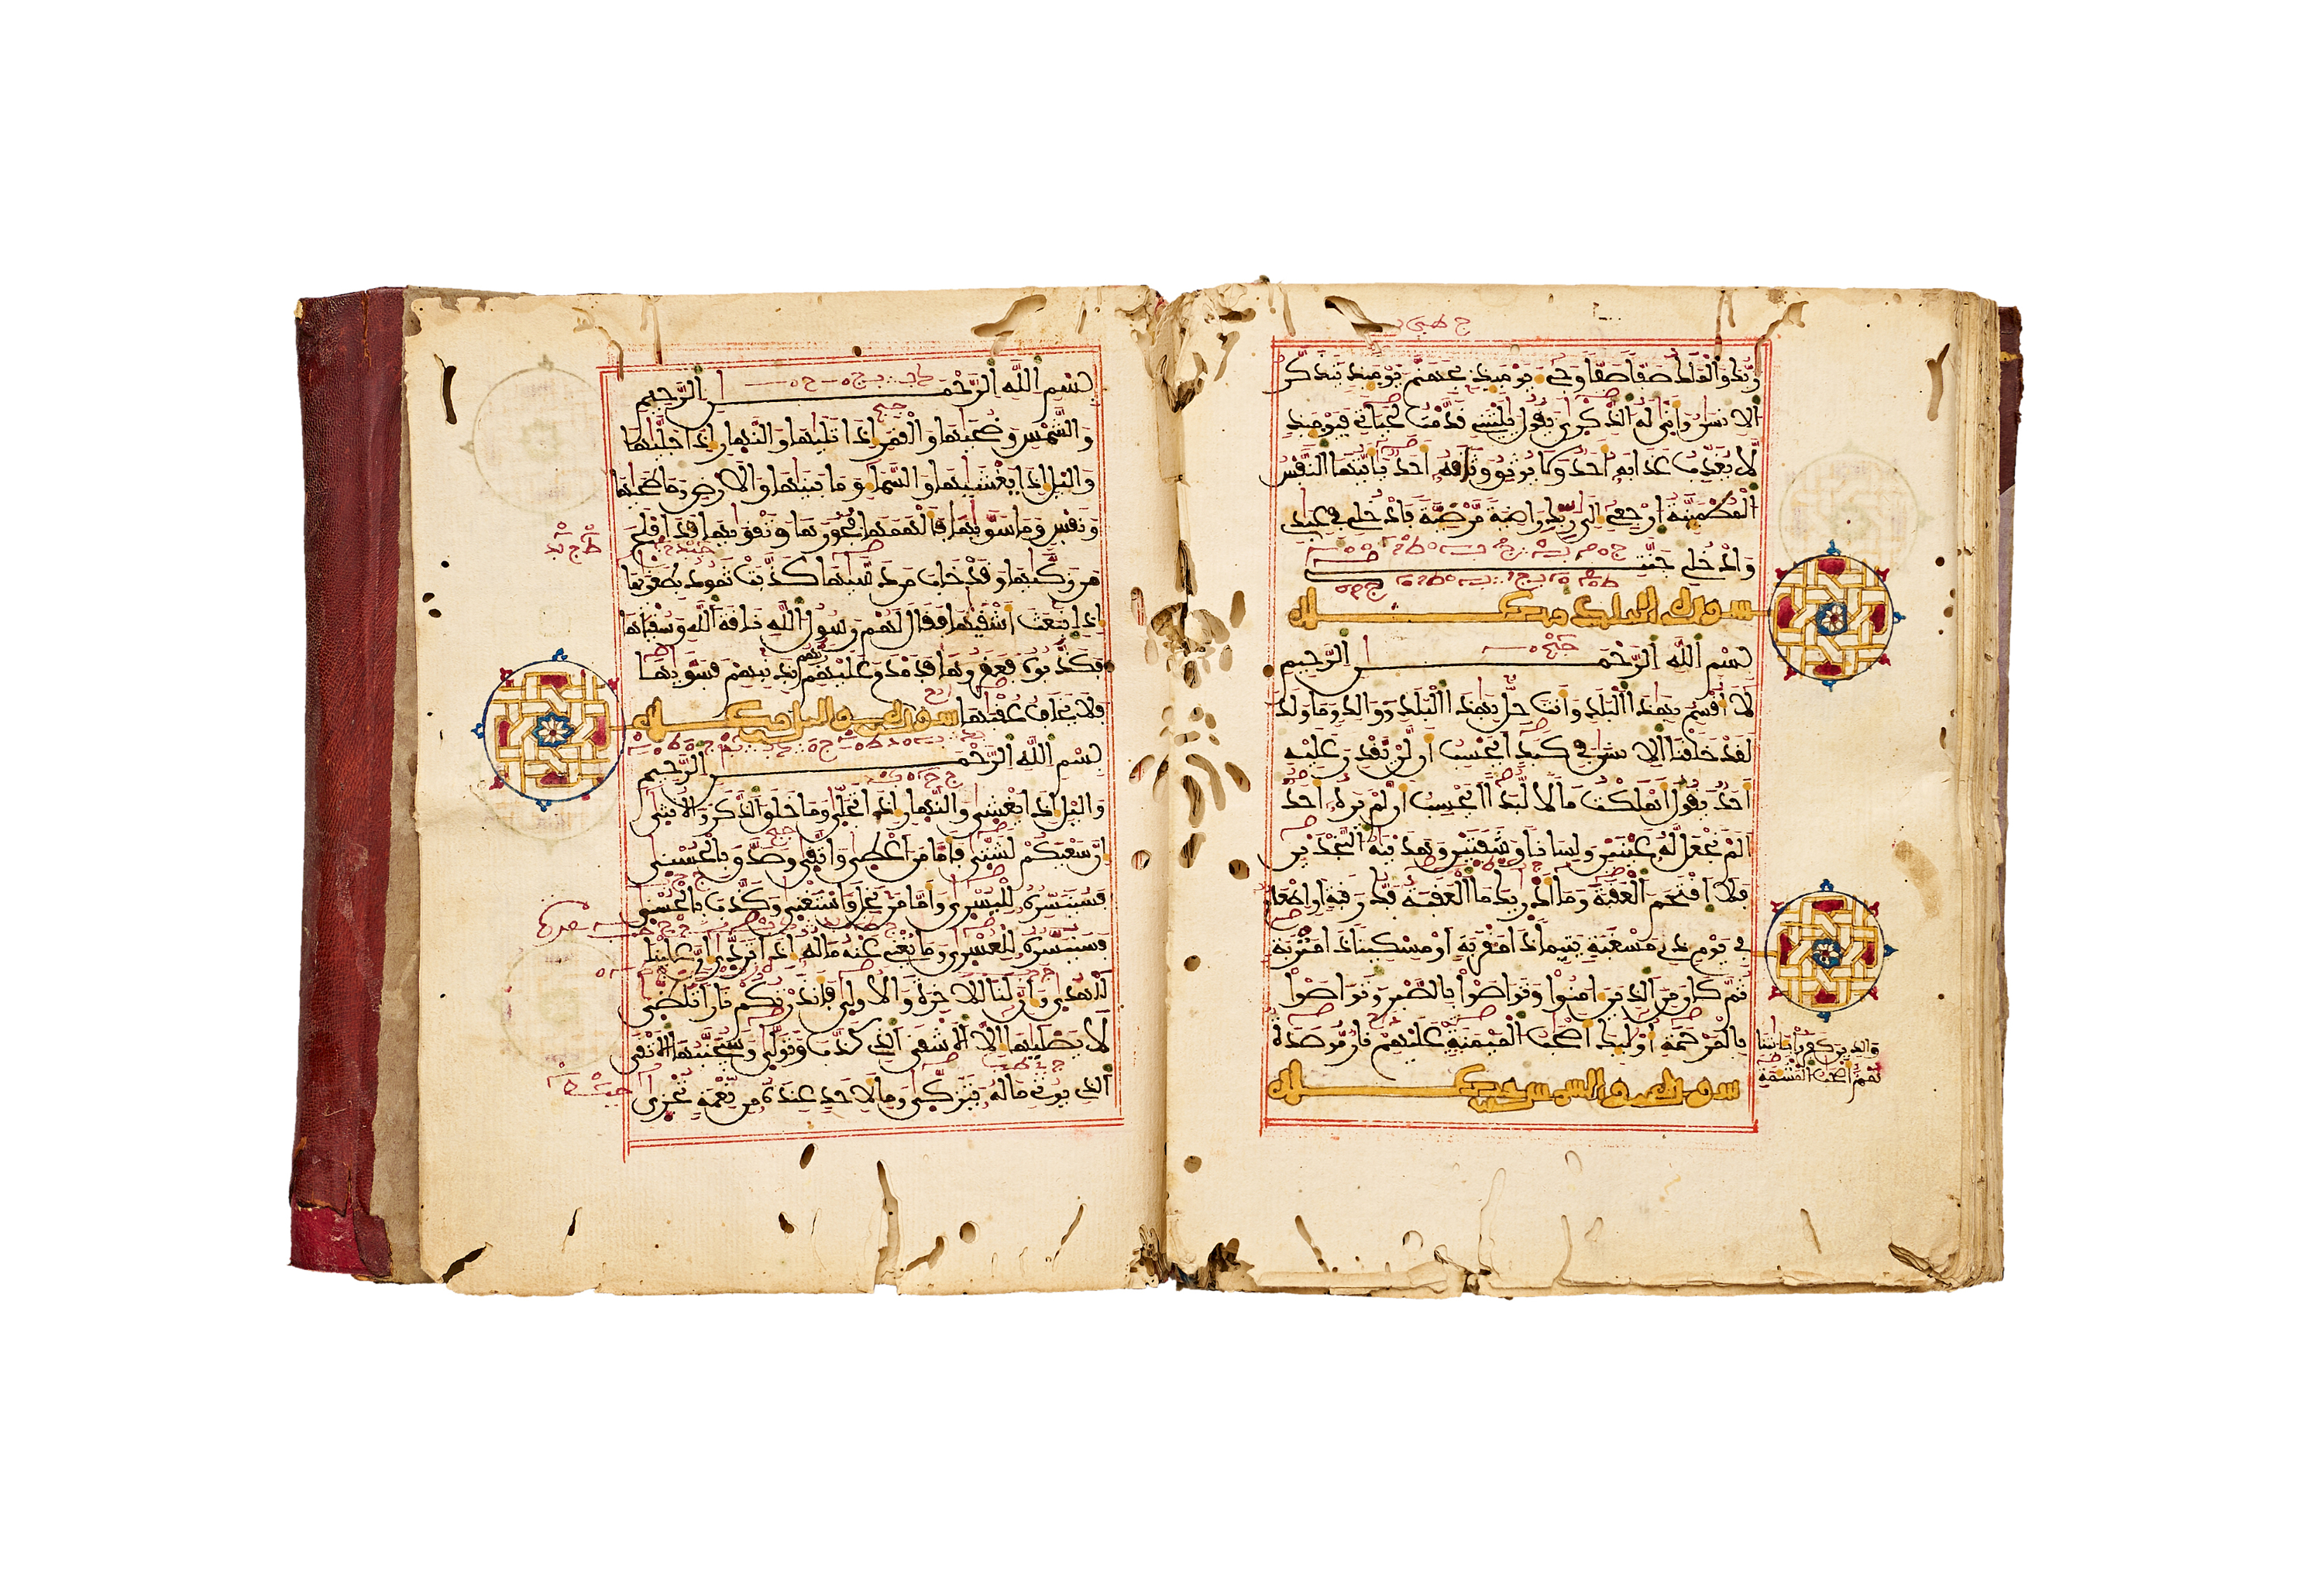 ربك والملك صفا صفا وجىء يومئذ بجهنم يومئذ يتذكر
الانسن وانى له الذكرى يقول يليتني قدمت لحياتي فيومئذ
لا يعذب عذابه احد ولا يوثق وثاقه احد يايتها النفس
المطمئنة ارجعي الى ربك راضية مرضية فادخلي في عبدي
وادخلي جنتي
سورة البلد مكية
بسم الله الرحمن الرحيم
لا اقسم بهذا البلد وانت حل بهذا البلد ووالد وما ولد
لقد خلقنا الانسن في كبد ايحسب ان لن يقدر عليه
احد يقول اهلكت مالا لبدا ايحسب ان لم يره احد
الم نجعل له عينين ولسانا وشفتين وهدينه النجدين
فلا اقتحم العقبة وما ادريك ما العقبة فك رقبة او اطعام
في يوم ذي مسغبة يتيما ذا مقربة او مسكينا ذا متربة
ثم كان من الذين امنوا وتواصوا بالصبر وتواصوا
بالمرحمة اولئك اصحب الميمنة عليهم نار موصدة
والذين كفروا بايتنا
هم اصحب المشئمة
سورة والشمس مكية
بسم الله الرحمن الرحيم
والشمس وضحيها والقمر اذا تليها والنهار اذا جليها
واليل اذا يغشيها والسماء وما بنيها والارض وما طحيها
ونفس وما سويها فالهمها فجورها وتقويها قد افلح
من زكيها وقد خاب من دسيها كذبت ثمود بطغويها
اذ انبعث اشقيها فقال لهم رسول الله ناقة الله وسقيها
فكذبوه فعقروها فدمدم عليهم ربهم بذنبهم فسويها
فلا يخاف عقبها سورة واليل مكية
بسم الله الرحمن الرحيم
واليل اذا يغشى والنهار اذا تجلى وما خلق الذكر والانثى
ان سعيكم لشتى فاما من اعطى واتقى وصدق بالحسنى
فسنيسره لليسرى واما من بخل واستغنى وكذب بالحسنى
فسنيسره للعسرى وما يغني عنه ماله اذا تردى ان علينا
للهدى وان لنا للاخرة والاولى فانذرتكم نارا تلظى
لا يصليها الا الاشقى الذي كذب وتولى وسيجنبها الاتقى
الذي يوتي ماله يتزكى وما لاحد عنده من نعمة تجزى